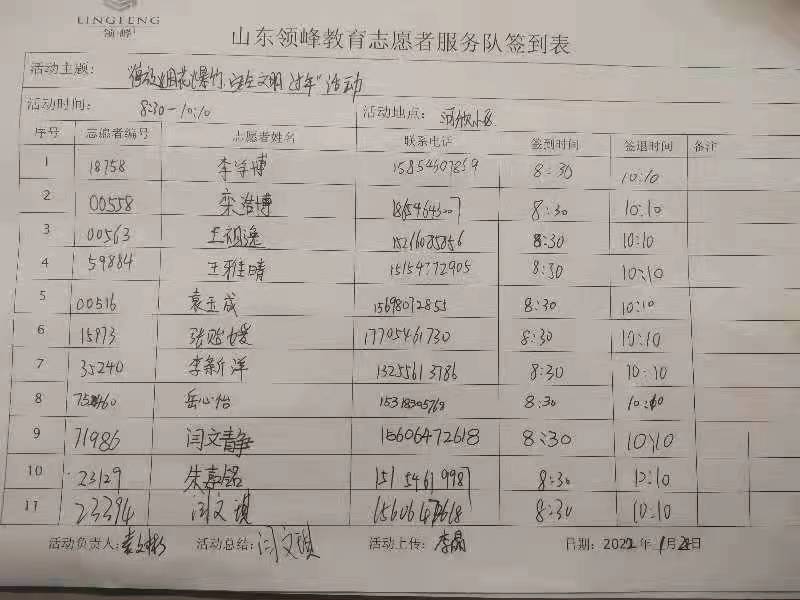 LINGFENG
领峰
山东领峰教育志愿者服务队签到表
活动主题: 烟花爆竹,安全文明过年"活动
活动时间: 8:30-10:10 活动地点: 小区
序号 志愿者编号 志愿者姓名 联系电话 签到时间 签退时间 备注
1 18758 李学博 15854607859 8:30 10:10
2 00558 栾浩博 8:30 10:10
3 00563 王祖逸 8:30 10:10
4 59884 王雅晴 15154772905 8:30 10:10
5 00516 袁玉成 15698072855 8:30 10:10
6 15973 张贻媛 17705461730 8:30 10:10
7 35240 李新洋 13255613786 8:30 10:10
8 岳心怡 15318305768 8:30 10:10
9 71986 闫文静 15606472618 8:30 10:10
10 23129 朱嘉铭 15154619987 8:30 10:10
11 23394 闫文琪 8:30 10:10
活动负责人: 活动总结: 闫文琪 活动上传: 李 日期: 2022年1月 日